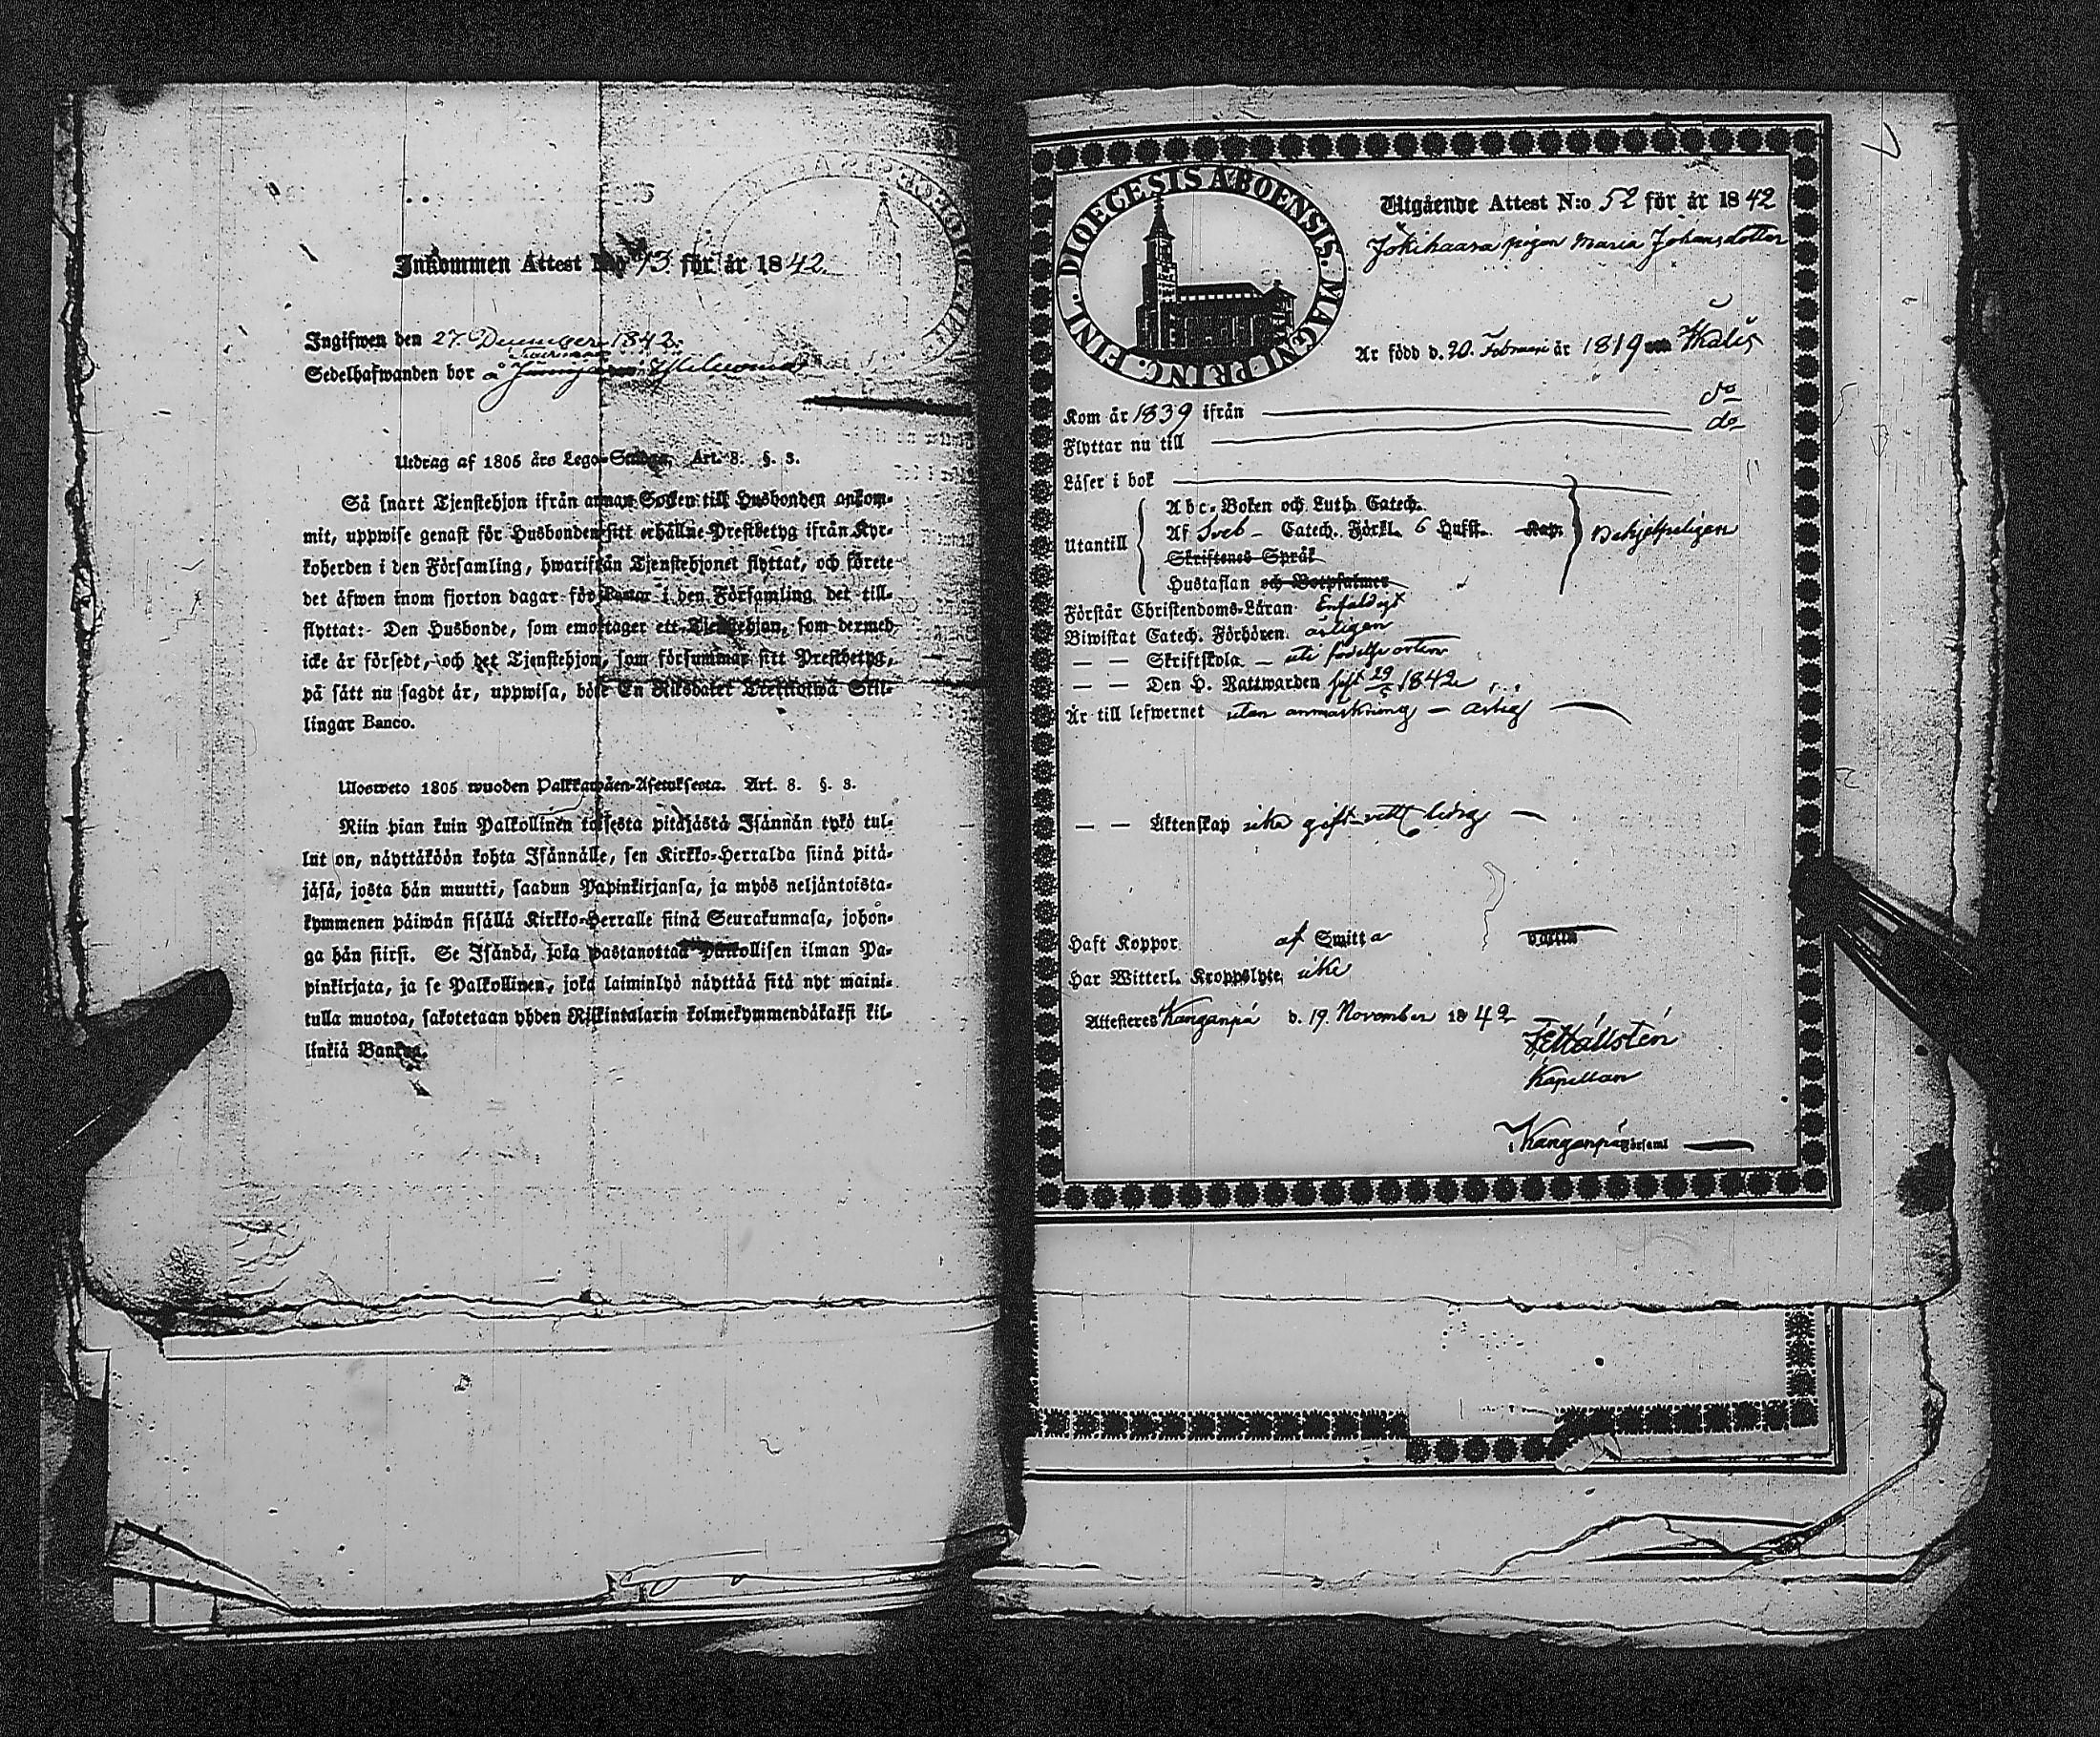 Inkommen Attest N:o 73 för år 1842.
Ingifwen den 27 December 1842.
Sedelhafwanden bor å
Utdrag af 1805 års Lego-Stadga, Art. 8. §. 3.
Så snart Tjenstehjon ifrån annan Socken till Husbonden ankom-
mit, uppwise genast för Husbonden sitt erhållne Prestbetyg ifrån Kyr-
koherden i den Församling, hwarifrån Tjenstehjonet flyttat, och förete
det äfwen inom fjorton dagar för Pastor i den Församling det till-
flyttat: Den Husbonde, som emottager ett Tjenstehjon, som dermed
icke är försedt, och det Tjenstehjon, som försummar sitt Prestbetyg,
på sätt nu sagdt är, uppwisa, böte En Riksdaler Trettiotwå Skil-
lingar Banco.
Ulosweto 1805 wuoden Palkkawäen-Asetuksesta. Art. 8. §. 3.
Niin pian kuin Palkollinen toisesta pitäjästä Isännän tykö tul-
lut on, näyttäköön kohta Isännälle, sen Kirkko-Herralda siinä pitä-
jäsä, josta hän muutti, saadun Papinkirjansa, ja myös neljäntoista-
kymmenen päiwän sisällä Kirkko-Herralle siinä Seurakunnasa, johon-
ga hän siirsi. Se Isändä, joka wastanottaa Palkollisen ilman Pa-
pinkirjata, ja se Palkollinen, joka laiminlyö näyttää sitä nyt maini-
tulla muotoa, sakotetaan yhden Riikintalarin kolmekymmendäkaksi kil-
linkiä Bankos.
DIOECESIS ABOENSIS. MAGNI PRINC. FINL.
Utgående Attest N:o 52 för år 1842
Jokihaara pigan Maria Johansdotter
Är född d. 20. Februari år 1819
Kom år 1839 ifrån do
Flyttar nu till do
Läser i bok
Abc-Boken och Luth. Catech.
Utantill Af Sveb - Catech. Förkl. 6 Hufst. Kap.
Skriftenes Språk
Hustaflan och Botpsalmer
Förstår Christendoms-Läran Enfaldigt
Biwistat Catech. Förhören årligen
— — Skriftskola — uti födelse orten
— — Den H. Nattwarden sist 29/5 1842
Är till lefwernet utan anmärkning — ärlig
— — Äktenskap icke gift — ledig
Haft Koppor af Smitta Vaccin
Har Witterl. Kroppslyte icke
Attesteres Kanganpä d. 19. November 1842
Hällstén
Kapellan
i Kanganpä Församl